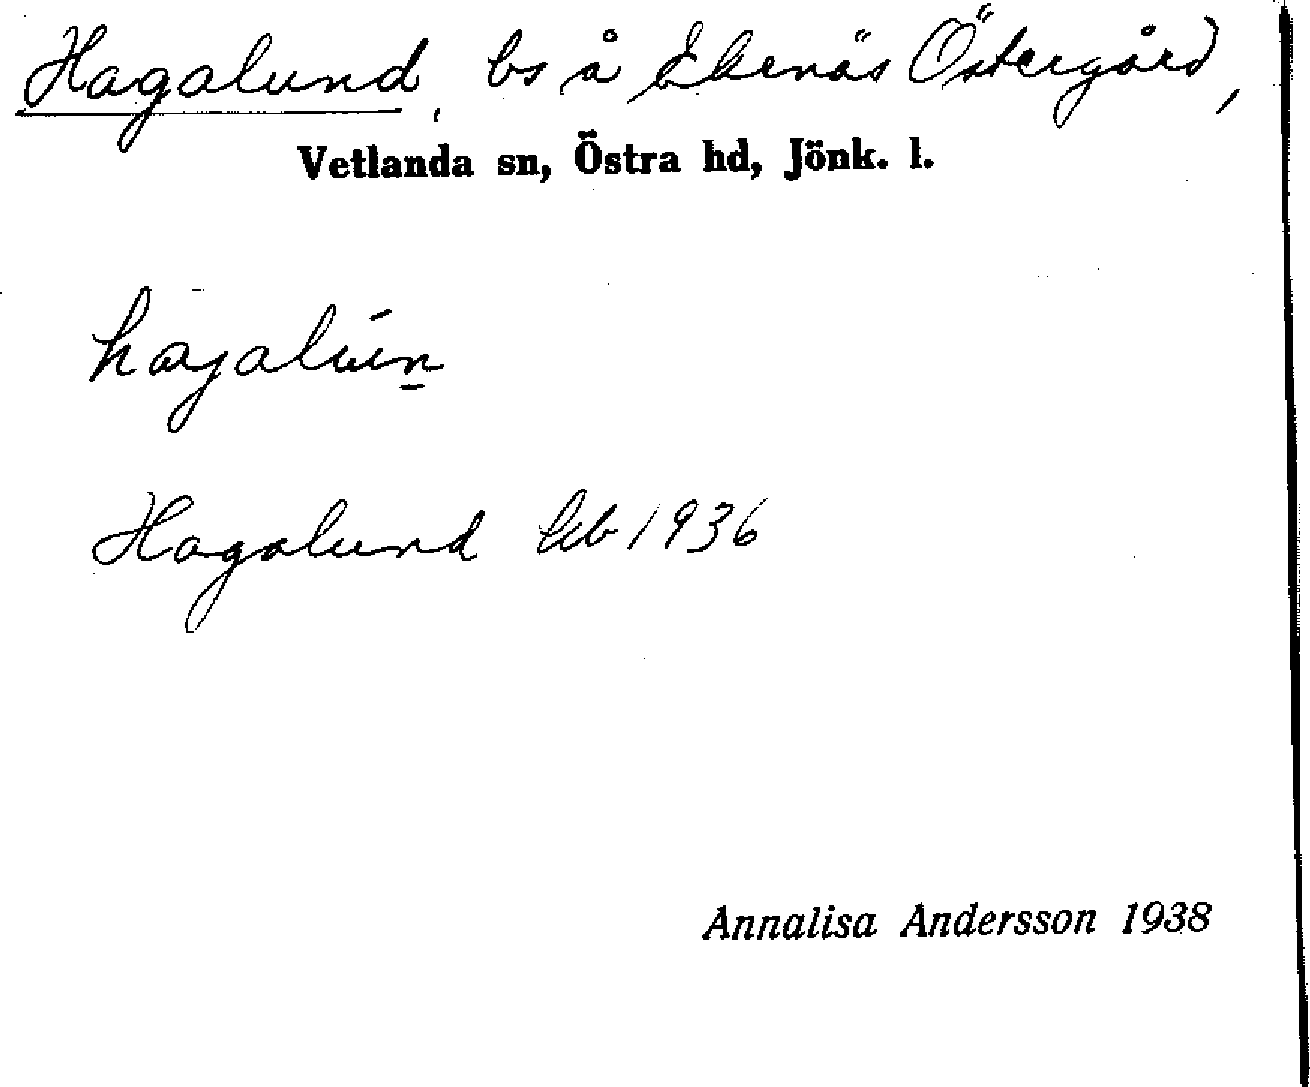 Hagalund, bs å Ekenäs Östergård,
Vetlanda sn, Östra hd, Jönk. l.
Hagalund 1936
Annalisa Andersson 1938